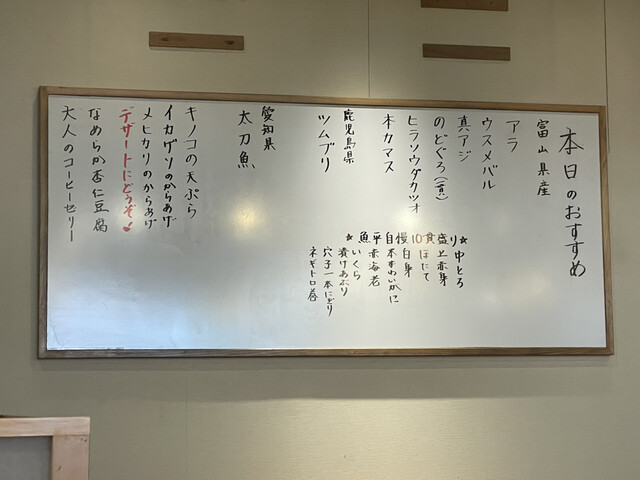 本日のおすすめ
富山県産
アラ
ウスメバル
真アジ
のどぐろ(一貫)
ヒラソウダカツオ
本カマス
鹿児島県
ツムブリ
愛知県
太刀魚
★魚平自慢10貫盛り★
中とろ
上赤身
ほたて
白身
本ずわいかに
赤海老
いくら
漬けあぶり
穴子一本にぎり
ネギトロ巻
キノコの天ぷら
イカゲソのからあげ
メヒカリのからあげ
デザートにどうぞ
なめらか杏仁豆腐
大人のコーヒーゼリー